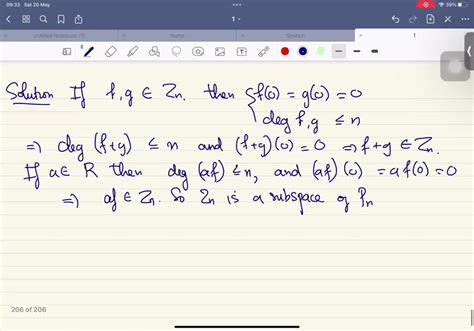 09:33 Sat 20 May
39%
1
Untitled Notebook (1)
Home
1
Solution If f, g ∈ Zn. then { f(0) = g(0) = 0
deg f, g ≤ n
⇒ deg (f+g) ≤ n and (f+g)(0) = 0 ⇒ f+g ∈ Zn.
If a ∈ R then deg (af) ≤ n, and (af)(0) = a f(0) = 0
⇒ af ∈ Zn. So Zn is a subspace of Pn
206 of 206